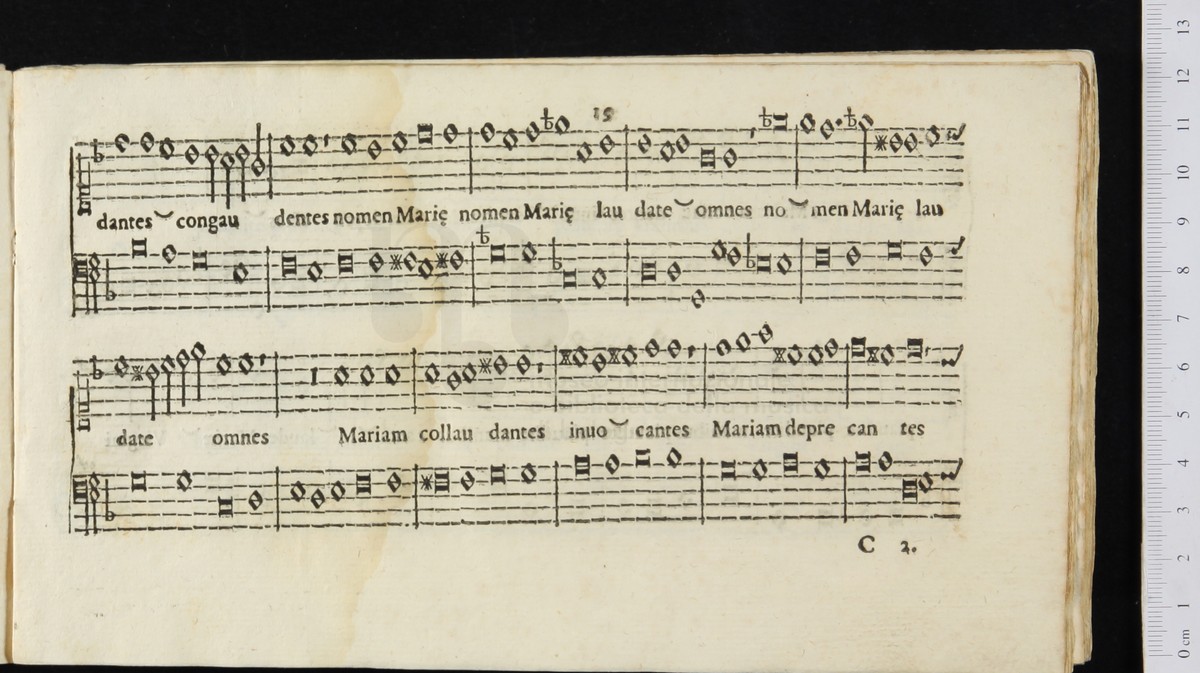 19
dantes congau dentes nomen Marię nomen Marię lau date omnes no men Marię lau
date omnes Mariam collau dantes inuo cantes Mariam depre can tes
C 2.
13
12
11
10
9
8
7
6
5
4
3
2
1
0 cm